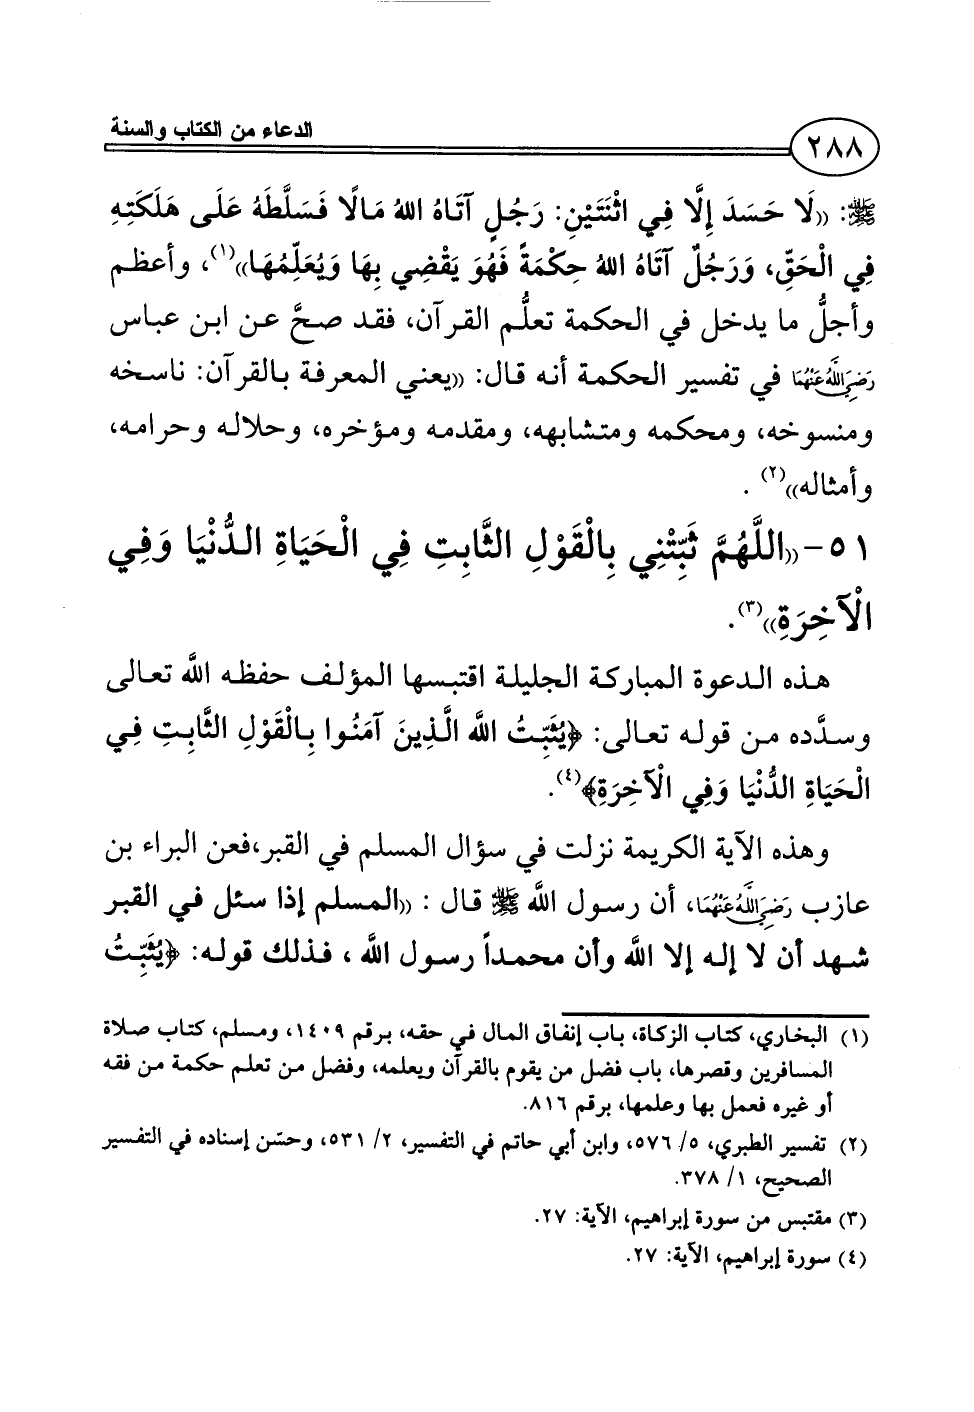 الدعاء من الكتاب والسنة
٢٨٨
ﷺ: ((لَا حَسَدَ إِلَّا فِي اثْنَتَيْنِ: رَجُلٍ آتَاهُ اللهُ مَالًا فَسَلَّطَهُ عَلَى هَلَكَتِهِ
فِي الْحَقِّ، وَرَجُلٌ آتَاهُ اللهُ حِكْمَةً فَهُوَ يَقْضِي بِهَا وَيُعَلِّمُهَا))(١)، وأعظم
وأجلُّ ما يدخل في الحكمة تعلُّم القرآن، فقد صحَّ عن ابن عباس
رَضِيَ اللَّهُ عَنْهُمَا في تفسير الحكمة أنه قال: ((يعني المعرفة بالقرآن: ناسخه
ومنسوخه، ومحكمه ومتشابهه، ومقدمه ومؤخره، وحلاله وحرامه،
وأمثاله))(٢) .
٥١-((اللَّهُمَّ ثَبِّتْنِي بِالْقَوْلِ الثَّابِتِ فِي الْحَيَاةِ الدُّنْيَا وَفِي
الْآخِرَةِ))(٣).
هذه الدعوة المباركة الجليلة اقتبسها المؤلف حفظه الله تعالى
وسدَّده من قوله تعالى: ﴿يُثَبِّتُ اللهُ الَّذِينَ آمَنُوا بِالْقَوْلِ الثَّابِتِ فِي
الْحَيَاةِ الدُّنْيَا وَفِي الْآخِرَةِ﴾(٤).
وهذه الآية الكريمة نزلت في سؤال المسلم في القبر،فعن البراء بن
عازب رَضِيَ اللَّهُ عَنْهُمَا، أن رسول الله ﷺ قال : ((المسلم إذا سئل في القبر
شهد أن لا إله إلا الله وأن محمداً رسول الله ، فذلك قوله: ﴿يُثَبِّتُ
(١) البخاري، كتاب الزكاة، باب إنفاق المال في حقه، برقم ١٤٠٩، ومسلم، كتاب صلاة
المسافرين وقصرها، باب فضل من يقوم بالقرآن ويعلمه، وفضل من تعلم حكمة من فقه
أو غيره فعمل بها وعلمها، برقم ٨١٦.
(٢) تفسير الطبري، ٥/ ٥٧٦، وابن أبي حاتم في التفسير، ٢/ ٥٣١، وحسّن إسناده في التفسير
الصحيح، ١/ ٣٧٨.
(٣) مقتبس من سورة إبراهيم، الآية: ٢٧.
(٤) سورة إبراهيم، الآية: ٢٧.